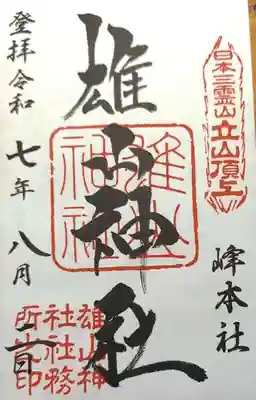 日本三霊山
立山頂上
峰本社
雄山神社
雄山
神社
登拝令和七年八月日
雄山神
社社務
所之印